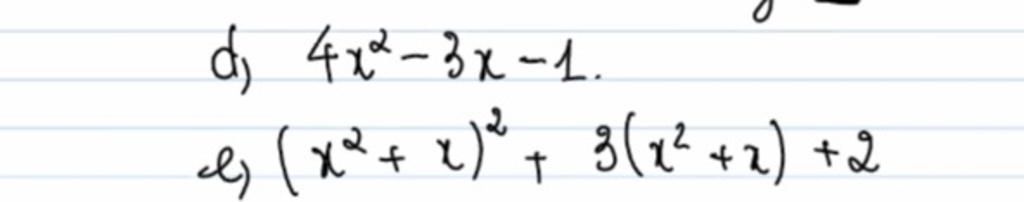 d) 4x² - 3x - 1.
e) (x² + x)² + 3(x² + x) + 2